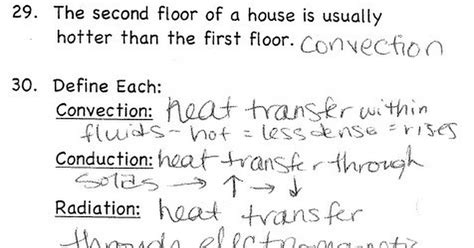 29. The second floor of a house is usually
hotter than the first floor. convection
30. Define Each:
Convection: heat transfer within
fluids - hot = less dense = rises
Conduction: heat transfer through
solids → ↑ → ↓
Radiation: heat transfer
through electromagnetic